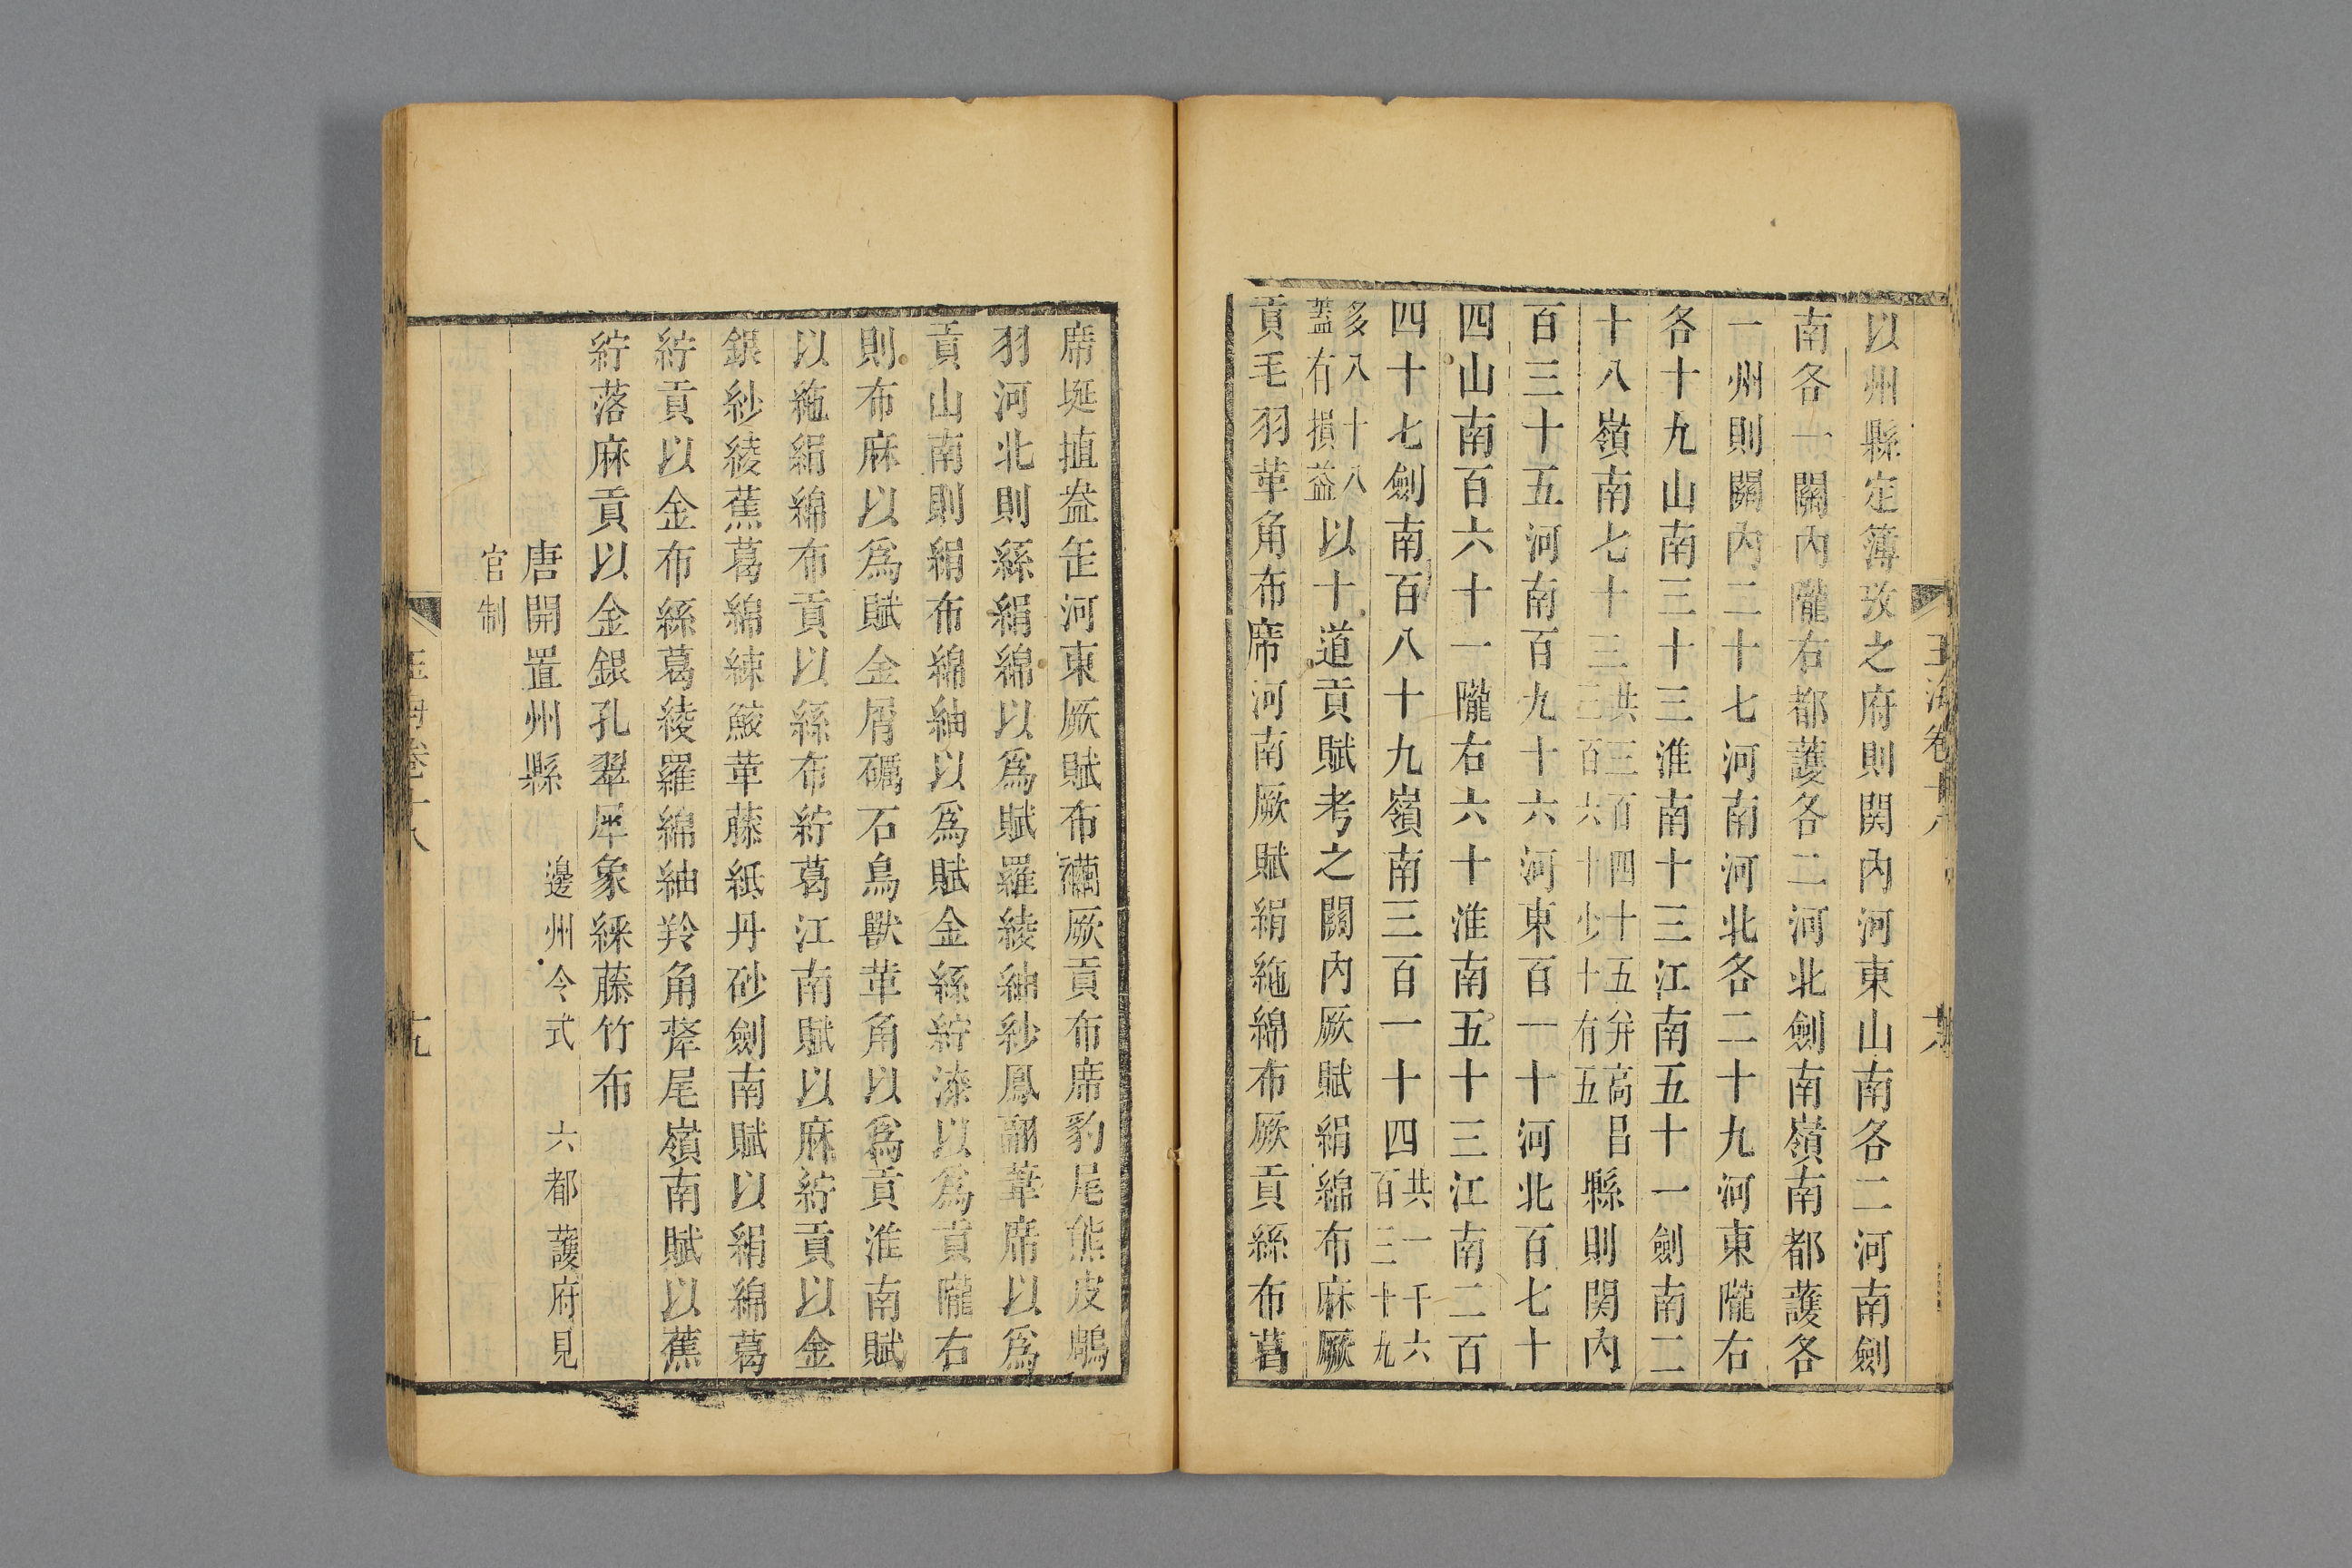 以州縣定簿攷之府則関內河東山南各二河南劍
南各一關內隴右都護各二河北劍南嶺南都護各
一州則關內二十七河南河北各二十九河東隴右
各十九山南三十三淮南十三江南五十一劍南二
十八嶺南七十三共三百四十五并高昌三百六十少十有五縣則関內
百三十五河南百九十六河東百一十河北百七十
四山南百六十一隴右六十淮南五十三江南二百
四十七劍南百八十九嶺南三百一十四共一千六百三十九
多八十八蓋有損益以十道貢賦考之關內厥賦絹綿布麻厥
貢毛羽革角布席河南厥賦絹絁綿布厥貢絲布葛
席埏埴盎缶河東厥賦布襺厥貢布席豹尾熊皮鵰
羽河北則絲絹綿以爲賦羅綾紬紗鳳翮葦席以爲
貢山南則絹布綿紬以爲賦金絲紵漆以爲貢隴右
則布麻以爲賦金屑礪石鳥獸革角以爲貢淮南賦
以絁絹綿布貢以絲布紵葛江南賦以麻紵貢以金
銀紗綾蕉葛綿綀鮫革藤紙丹砂劍南賦以絹綿葛
紵貢以金布絲葛綾羅綿紬羚角犛尾嶺南賦以蕉
紵落麻貢以金銀孔翠犀象綵藤竹布
唐開置州縣 邊州令式 六都護府見
官制